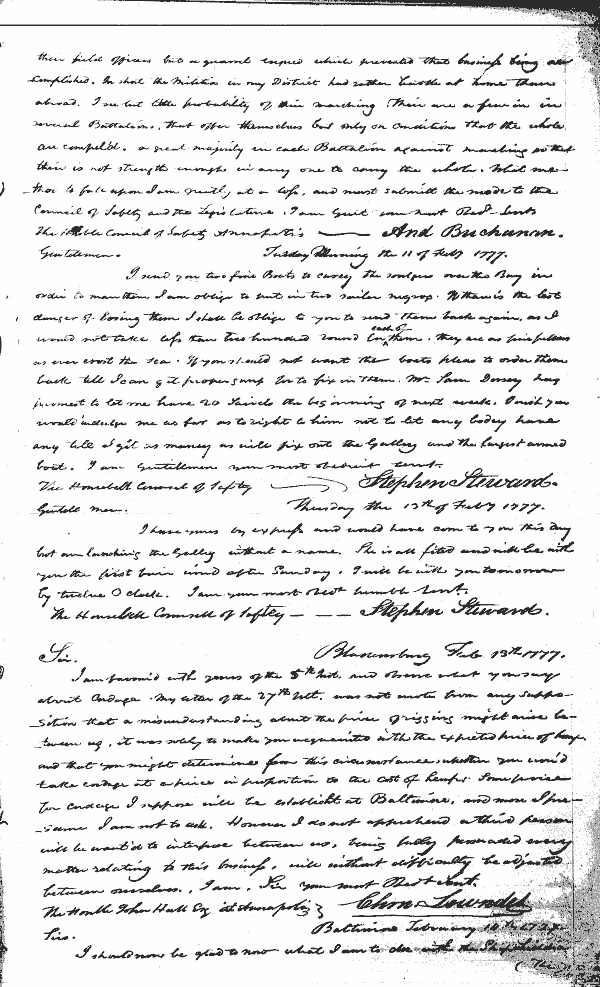 their field officers but a quarrel ensued which prevented that business being accomplished
complished. In short the Militia in my District had rather battle at home than
abroad. I see but little probability of their marching. Their are a few in
several Battalions, that offer themselves but only on conditions that the whole
are compel'd. a great majority in each Battalion against marching so that
their is not strength enough in any one to carry the whole. What me-
thod to fall upon I am greatly at a loss, and must submitt the mode to the
Council of Safety and the Legislature. I am Gent. your most Obedt. Servt.
The Honble Council of Safety Annapolis — And Buchanan.
Gentlemen. Tuesday Morning the 11 of Feby 1777.
I send you two fine Boats to carey the soulgers over the Bay in
order to man them I am oblige to put in two sailer negros. If there is the lest
danger of loosing them I shall be oblige to you to send them back again, as I
would not take less than two hundred pound for each of them. they are as fine fellows
as ever crost the sea. If you should not want the boats pleas to order them
back till I can git proper guns for to fix in them. Mr. Sam Dorsey has
promest to let me have 20 swivels the beginning of next week. I wish you
would indulge me as far as to right to him not to let any bodey have
any till I git as maney as will fix out the Galley and the largest armed
boat. I am Gentellmen your most obedient Servt.
The Honebell Counsel of Safty — Stephen Steward.
Gentell men. Thursday the 13th of Feby 1777.
I have yours by express and would have com to you this day
but am lanching the Galley without a name. She is all fited and will be with
you the first fair wind after Sunday. I will be with you tomorrow
by twelve O clock. I am your most obdt humble Servt.
The Honebell Counsell of Safty — — — Stephen Steward.
Sir. Bladensburg Feb 13th 1777.
I am favoured with yours of the 5th Inst. and observe what you say
about Cordage. My letter of the 27th Ult. was not wrote from any suppo-
-sition that a misunderstanding about the price of rigging might arise be-
-tween us, it was solely to make you acquainted with the expected price of hemp
and that you might determine from this circumstance, whether you wou'd
take cordage at a price in proportion to the cost of hemp. Some price
for cordage I suppose will be establisht at Baltimore, and more I pre-
-sume I am not to ask. However I do not apprehend a third person
will be wanted to interpose between us, being fully perswaded every
matter relating to this business, will without difficulty be adjusted
between ourselves. I am. Sir your most Obedt Servt.
The Honble John Hall Esq at Annapolis } Chrisr Lowndes
Sirs. Baltimore February 14th 1777.
I should now be glad to now what I am to doe with the Ship
(The